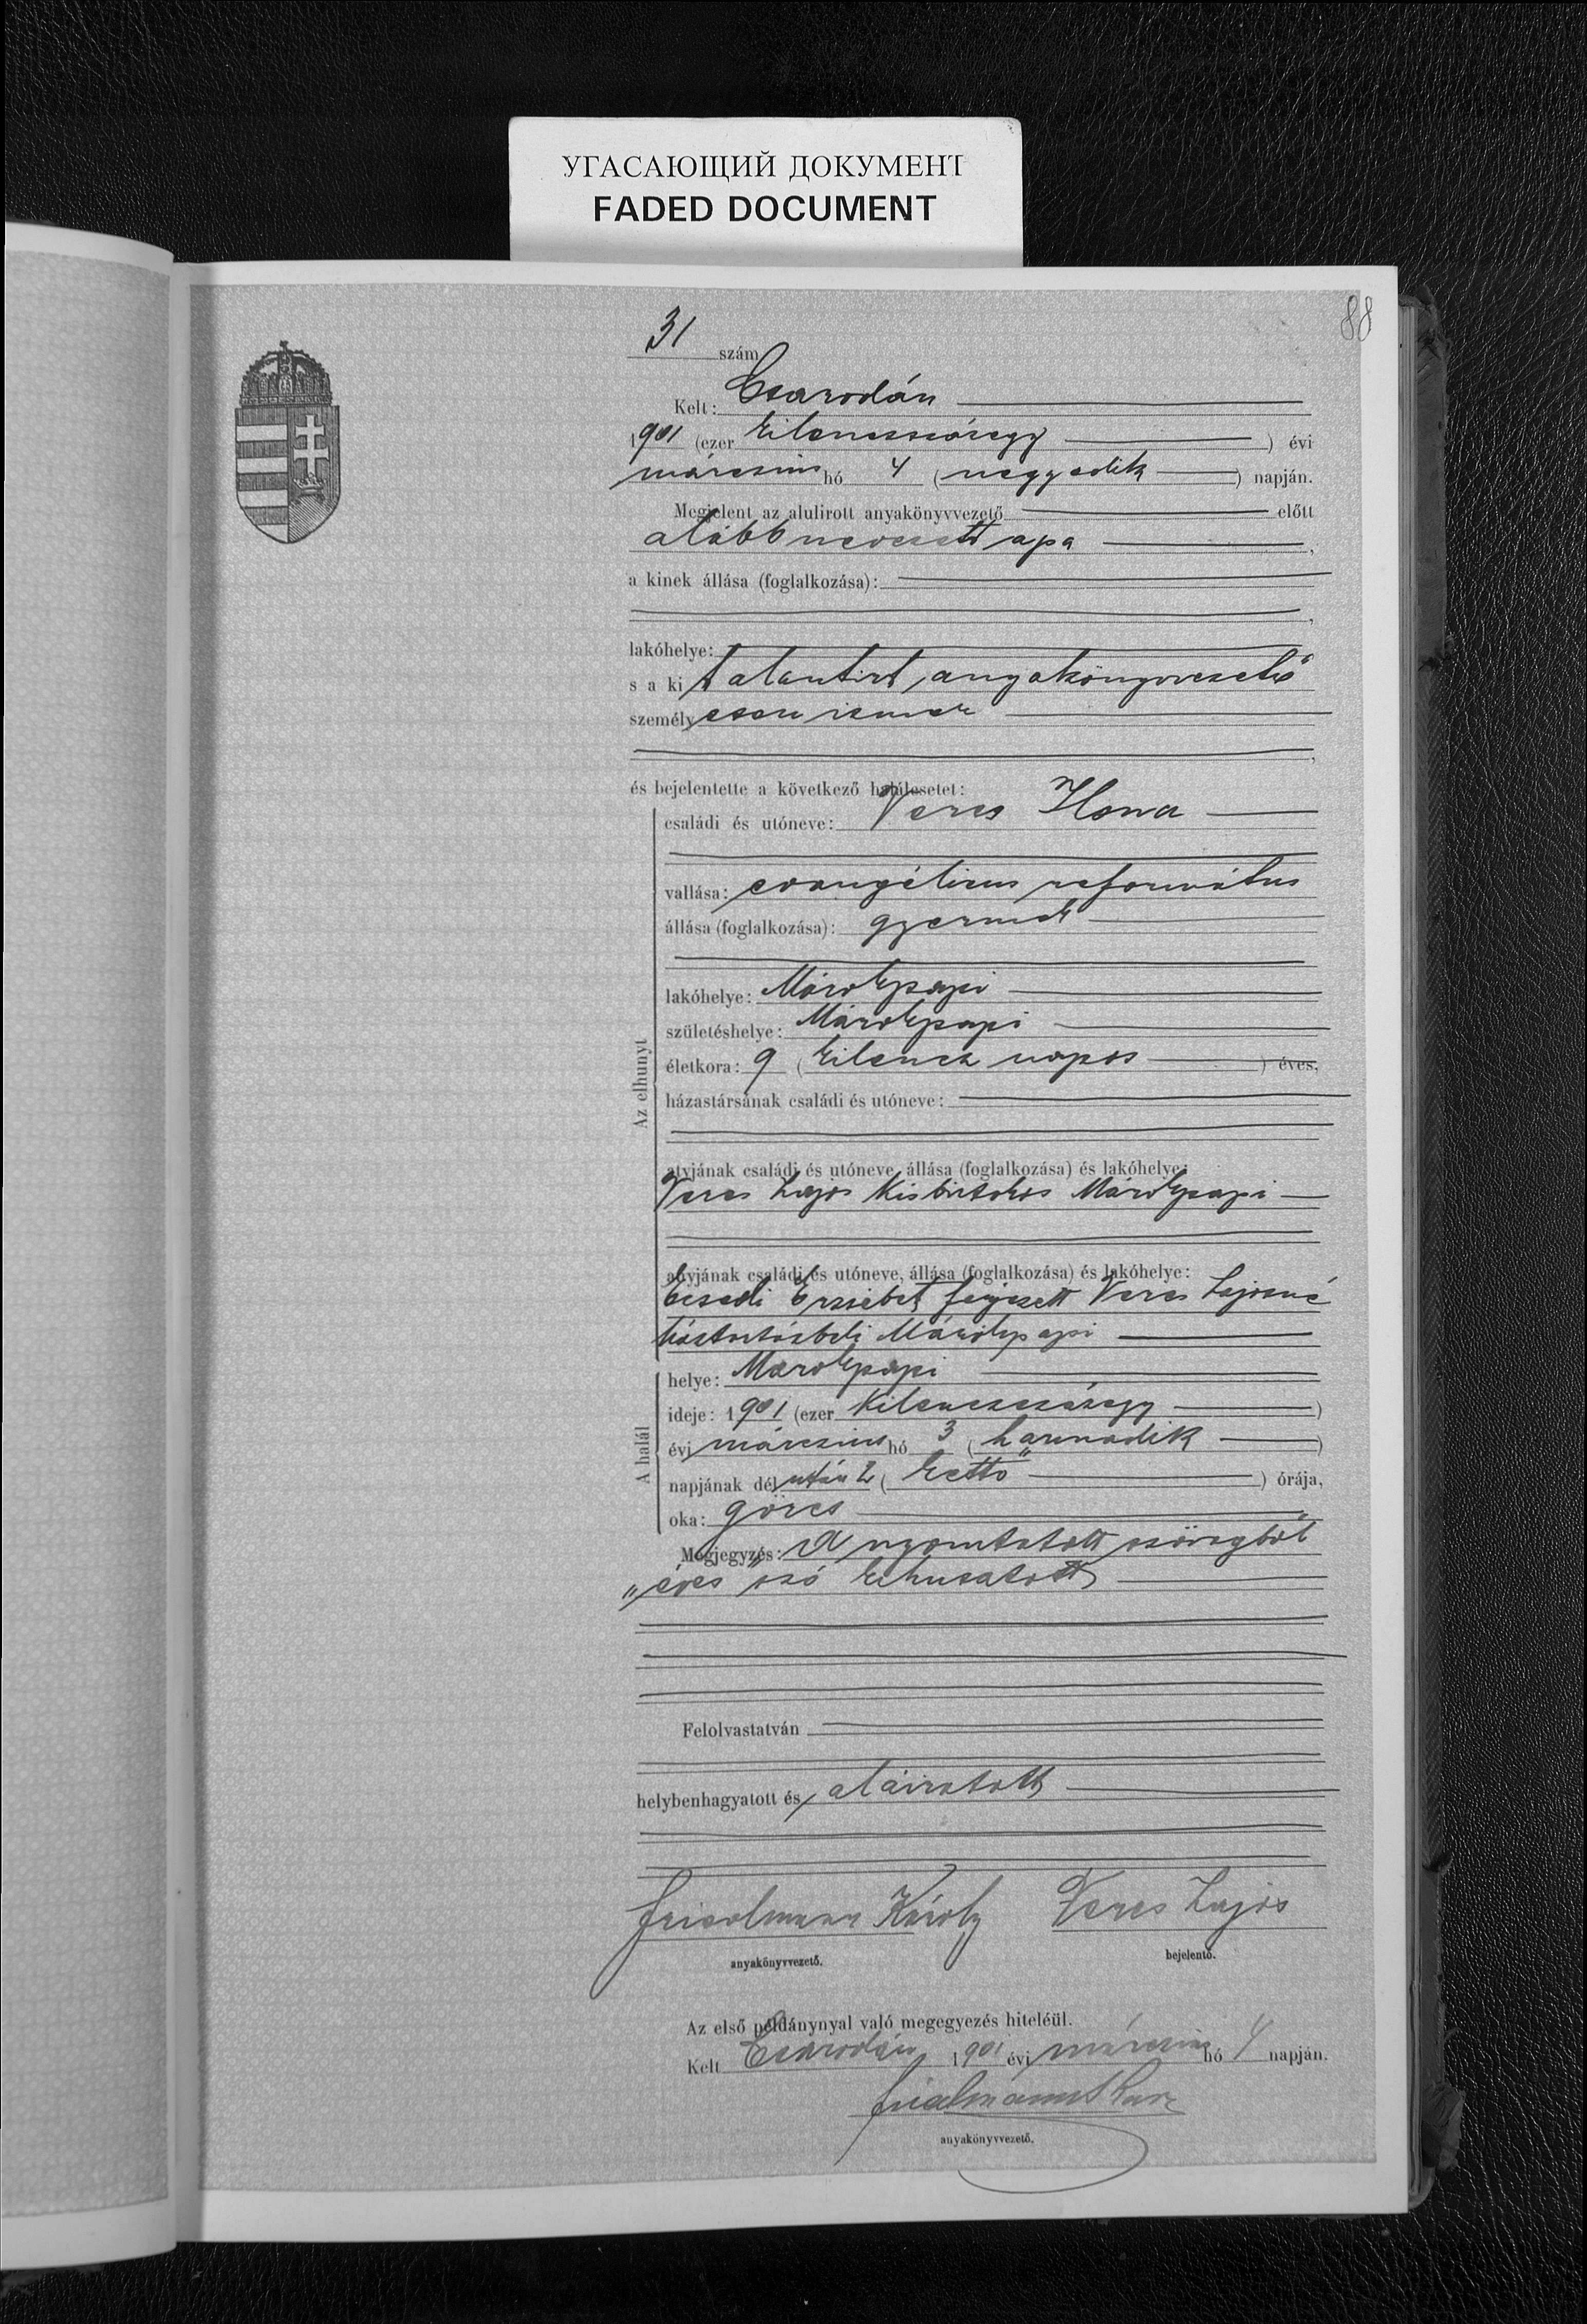 УГАСАЮЩИЙ ДОКУМЕНТ
FADED DOCUMENT
88
31 szám
Kelt: Csarodán
1901 (ezer kilencszázegy) évi
márczius hó 4 (negyedik) napján.
Megjelent az alulirott anyakönyvvezető előtt
alább nevezett apa,
a kinek állása (foglalkozása):
lakóhelye:
s a kit alantirt anyakönyvvezető
személyesen ismer
és bejelentette a következő halálesetet:
Az elhunyt
családi és utóneve: Veres Ilona
vallása: evangélicus református
állása (foglalkozása): gyermek
lakóhelye: Márokpapi
születéshelye: Márokpapi
életkora: 9 (kilencz napos) éves,
házastársának családi és utóneve:
atyjának családi és utóneve, állása (foglalkozása) és lakóhelye:
Veres Lajos kisbirtokos Márokpapi
anyjának családi és utóneve, állása (foglalkozása) és lakóhelye:
Ecsedi Erzsébet férjezett Veres Lajosné
háztartásbeli Márokpapi
A halál
helye: Márokpapi
ideje: 1901 (ezer kilenczszázegy)
évi márczius hó 3 (harmadik)
napjának délután 2 (kettő) órája,
oka: görcs
Megjegyzés: A nyomtatott szövegből
„éves" szó kihuzatott
Felolvastatván
helybenhagyatott és aláiratott
Friedmann Károly Veres Lajos
anyakönyvvezető. bejelentő.
Az első példánynyal való megegyezés hiteléül.
Kelt Csarodán 1901 évi márczius hó 4 napján.
anyakönyvvezető.